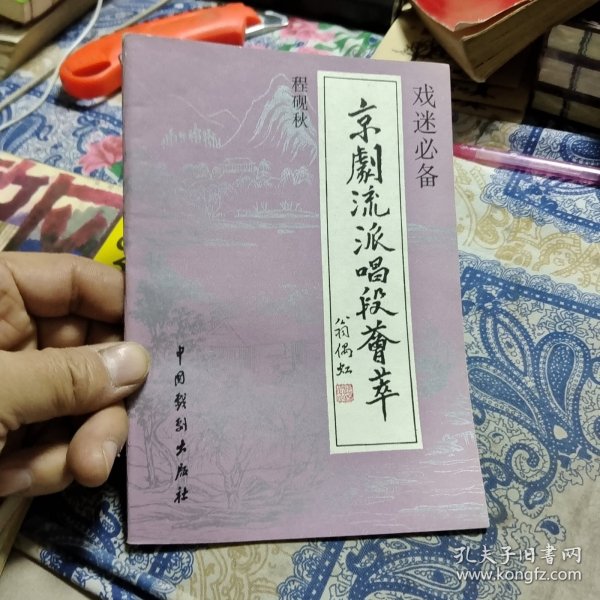 戏迷必备
京劇流派唱段薈萃
翁偶虹
程砚秋
中国戏剧出版社
孔夫子旧书网
www.kongfz.com